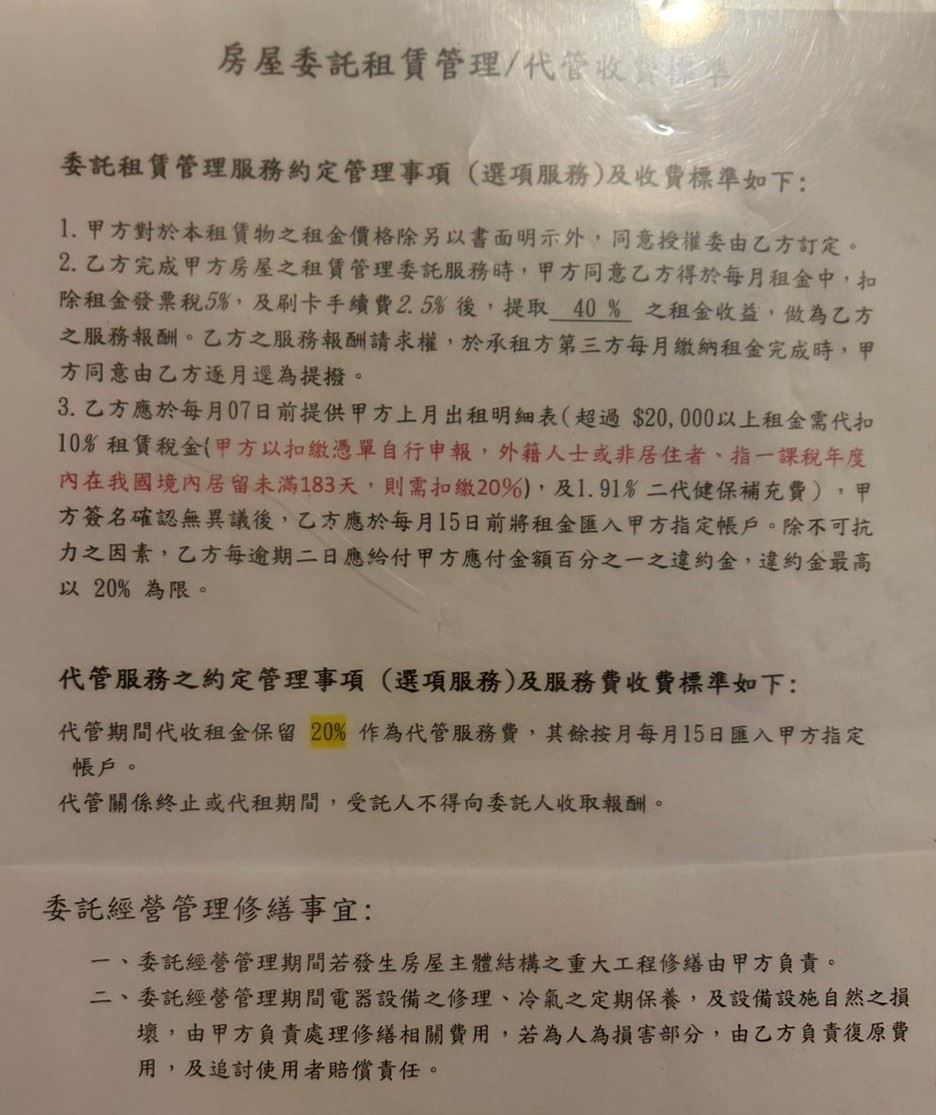 房屋委託租賃管理/代管收費標準
委託租賃管理服務約定管理事項 (選項服務)及收費標準如下:
1. 甲方對於本租賃物之租金價格除另以書面明示外，同意授權委由乙方訂定。
2. 乙方完成甲方房屋之租賃管理委託服務時，甲方同意乙方得於每月租金中，扣
除租金發票稅5%，及刷卡手續費2.5% 後，提取 40 % 之租金收益，做為乙方
之服務報酬。乙方之服務報酬請求權，於承租方第三方每月繳納租金完成時，甲
方同意由乙方逐月逕為提撥。
3. 乙方應於每月07日前提供甲方上月出租明細表(超過 $20,000以上租金需代扣
10% 租賃稅金(甲方以扣繳憑單自行申報，外籍人士或非居住者、指一課稅年度
內在我國境內居留未滿183天，則需扣繳20%)，及1.91% 二代健保補充費），甲
方簽名確認無異議後，乙方應於每月15日前將租金匯入甲方指定帳戶。除不可抗
力之因素，乙方每逾期二日應給付甲方應付金額百分之一之違約金，違約金最高
以 20% 為限。
代管服務之約定管理事項 (選項服務)及服務費收費標準如下:
代管期間代收租金保留 20% 作為代管服務費，其餘按月每月15日匯入甲方指定
帳戶。
代管關係終止或代租期間，受託人不得向委託人收取報酬。
委託經營管理修繕事宜:
一、委託經營管理期間若發生房屋主體結構之重大工程修繕由甲方負責。
二、委託經營管理期間電器設備之修理、冷氣之定期保養，及設備設施自然之損
壞，由甲方負責處理修繕相關費用，若為人為損害部分，由乙方負責復原費
用，及追討使用者賠償責任。